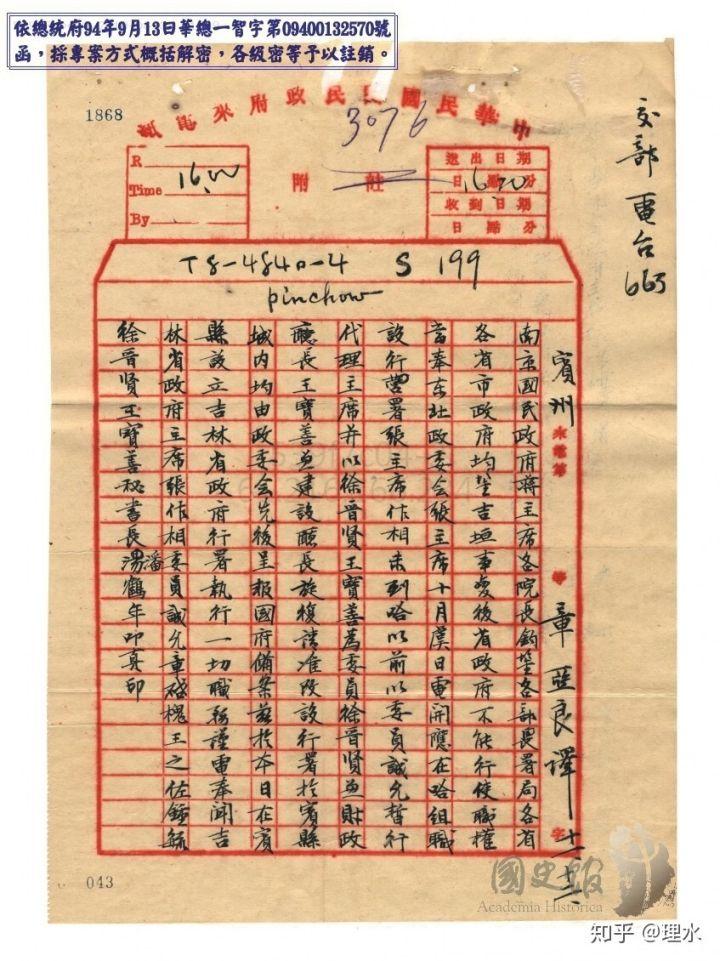 依總統府94年9月13日華總一智字第09400132570號
函,採專案方式概括解密,各級密等予以註銷。
1868
中華民國國民政府來電紙
3076
交部電台
665
R
Time 16.00
By
附 註
送出日期
日 16.20 分
收到日期
日 點 分
T8-4840-4 S 199
pinchow
賓州
來電第
等
章亞良譯
字
南京國民政府蔣主席各院長鈞鑒各部長署局各省
各省市政府均鑒吉垣事變後省政府不能行使職權
當奉東北政委會張主席十月虞日電開應在哈組職
設行署張主席作相未到哈以前以委員誠允暫行
代理主席并以徐晋賢王寶善為委員徐晋賢兼財政
廳長王寶善兼建設廳長旋復請准改設行署於賓縣
城内均由政委會先後呈報國府備案茲於本日在賓
縣設立吉林省政府行署執行一切職務謹電奉聞吉
林省政府主席張作相委員誠允章啟槐王之佐鍾毓
徐晋賢王寶善秘書長潘鶴年叩真印
043
國史館
Academia Historica
知乎 @理水